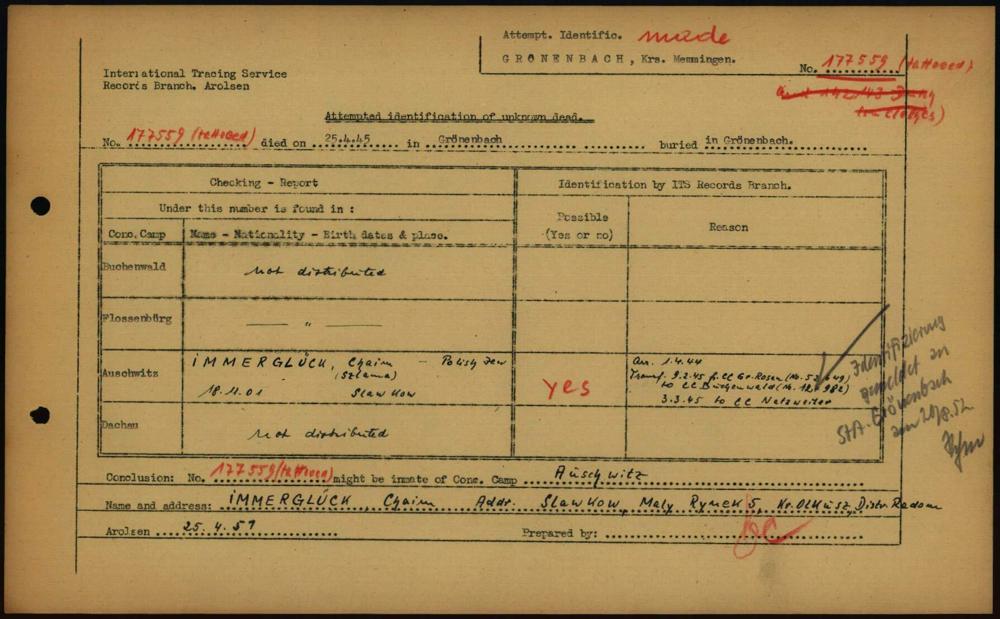 Attempt. Identific. made
GRÖNENBACH, Krs. Memmingen.
No. 177559 (tattooed)
International Tracing Service
Records Branch. Arolsen
Attempted identification of unknown dead.
No. 177559 (tattooed) died on 25.4.45 in Grönenbach buried in Grönenbach.
Checking - Report
Identification by ITS Records Branch.
Under this number is found in :
Possible
(Yes or no)
Reason
Conc. Camp
Name - Nationality - Birth dates & place.
Buchenwald
not distributed
Flossenbürg
— " —
Auschwitz
IMMERGLÜCK, Chaim - Polish Jew
(Szlama)
18.11.01 Slawkow
yes
Arr. 1.4.44
Transf. 9.2.45 f. CC Gr.-Rosen
to CC Buchenwald
3.3.45 to CC Natzweiler
Dachau
not distributed
Identifizierung
gemeldet an
StA. Grönenbach
am 20/8.52
Conclusion: No. 177559 (tattooed) might be inmate of Conc. Camp Auschwitz
Name and address: IMMERGLÜCK, Chaim Addr. Slawkow, Maly Rynek 5, Kr. Olkusz, Distr. Radom
Arolsen 25.4.51
Prepared by: